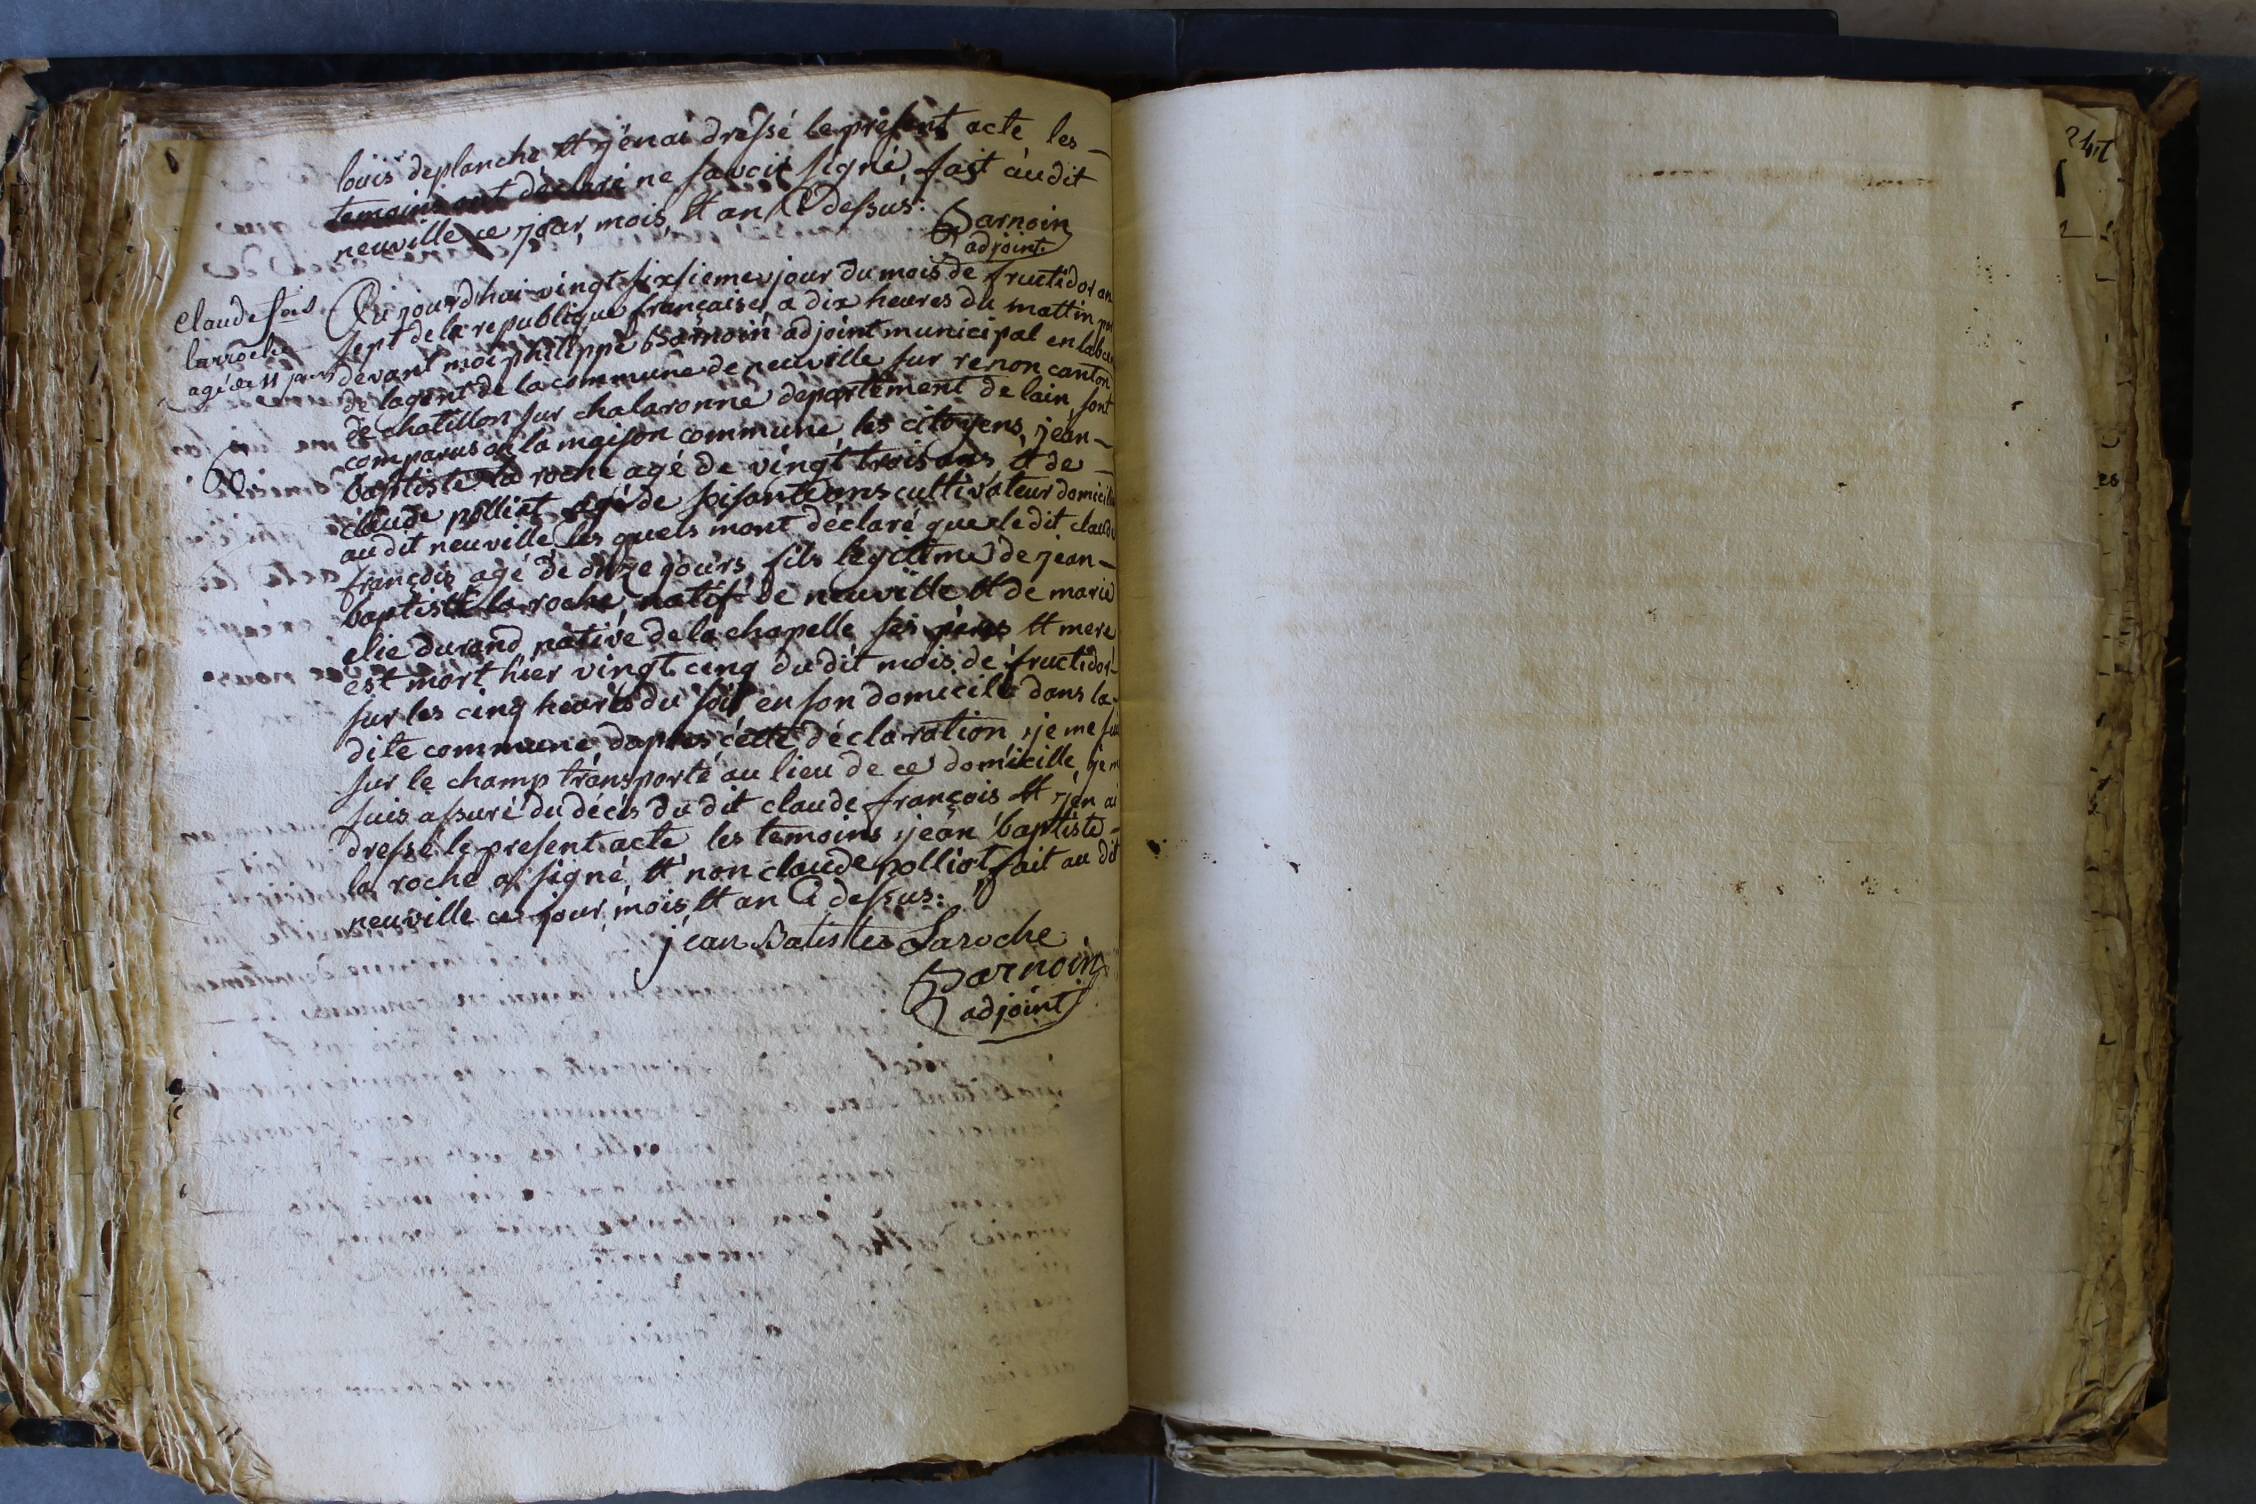 louis deplanche et j'enai dressé le présent acte les
temoins ont déclaré ne savoir signé, fait audit
neuville ce jour, mois, et an Ci dessus:
Barnoin
adjoint.
claude fois
larroche
agé de 11 jours
Au jourd'hui vingt sixsieme jour du mois de fructidor an
sept de la republique française, a dix heures du mattin par
devant moi philippe Barnoin adjoint municipal en labcen
de lagent de la commune de neuville sur renon canton
de chatillon sur chalaronne département de lain, sont
comparus en la maison commune les citoyens, jean
baptiste la roche agé de vingt trois ans, et de
claude polliat agé de soisante ans cultivateur domicilié
audit neuville les quels mont déclaré que le dit claude
françois agé de onze jours, fils legitime de jean
baptiste la roche, natif de neuville et de marie
elie durand native de la chapelle ses péres et mere
est mort hier vingt cinq du dit mois de fructidor
sur les cinq heures du soir en son domicile dans la
dite commune, daprès cette déclaration, je me suis
sur le champ transporté au lieu de ce domicille, je m
suis assuré du décés du dit claude françois et j'en ai
dressé le present acte les temoins, jean baptiste
la roche a signé et non claude polliat, fait au dit
neuville ces jour, mois, et an Ci dessus:
jean Batiste Laroche
Barnoin
adjoint